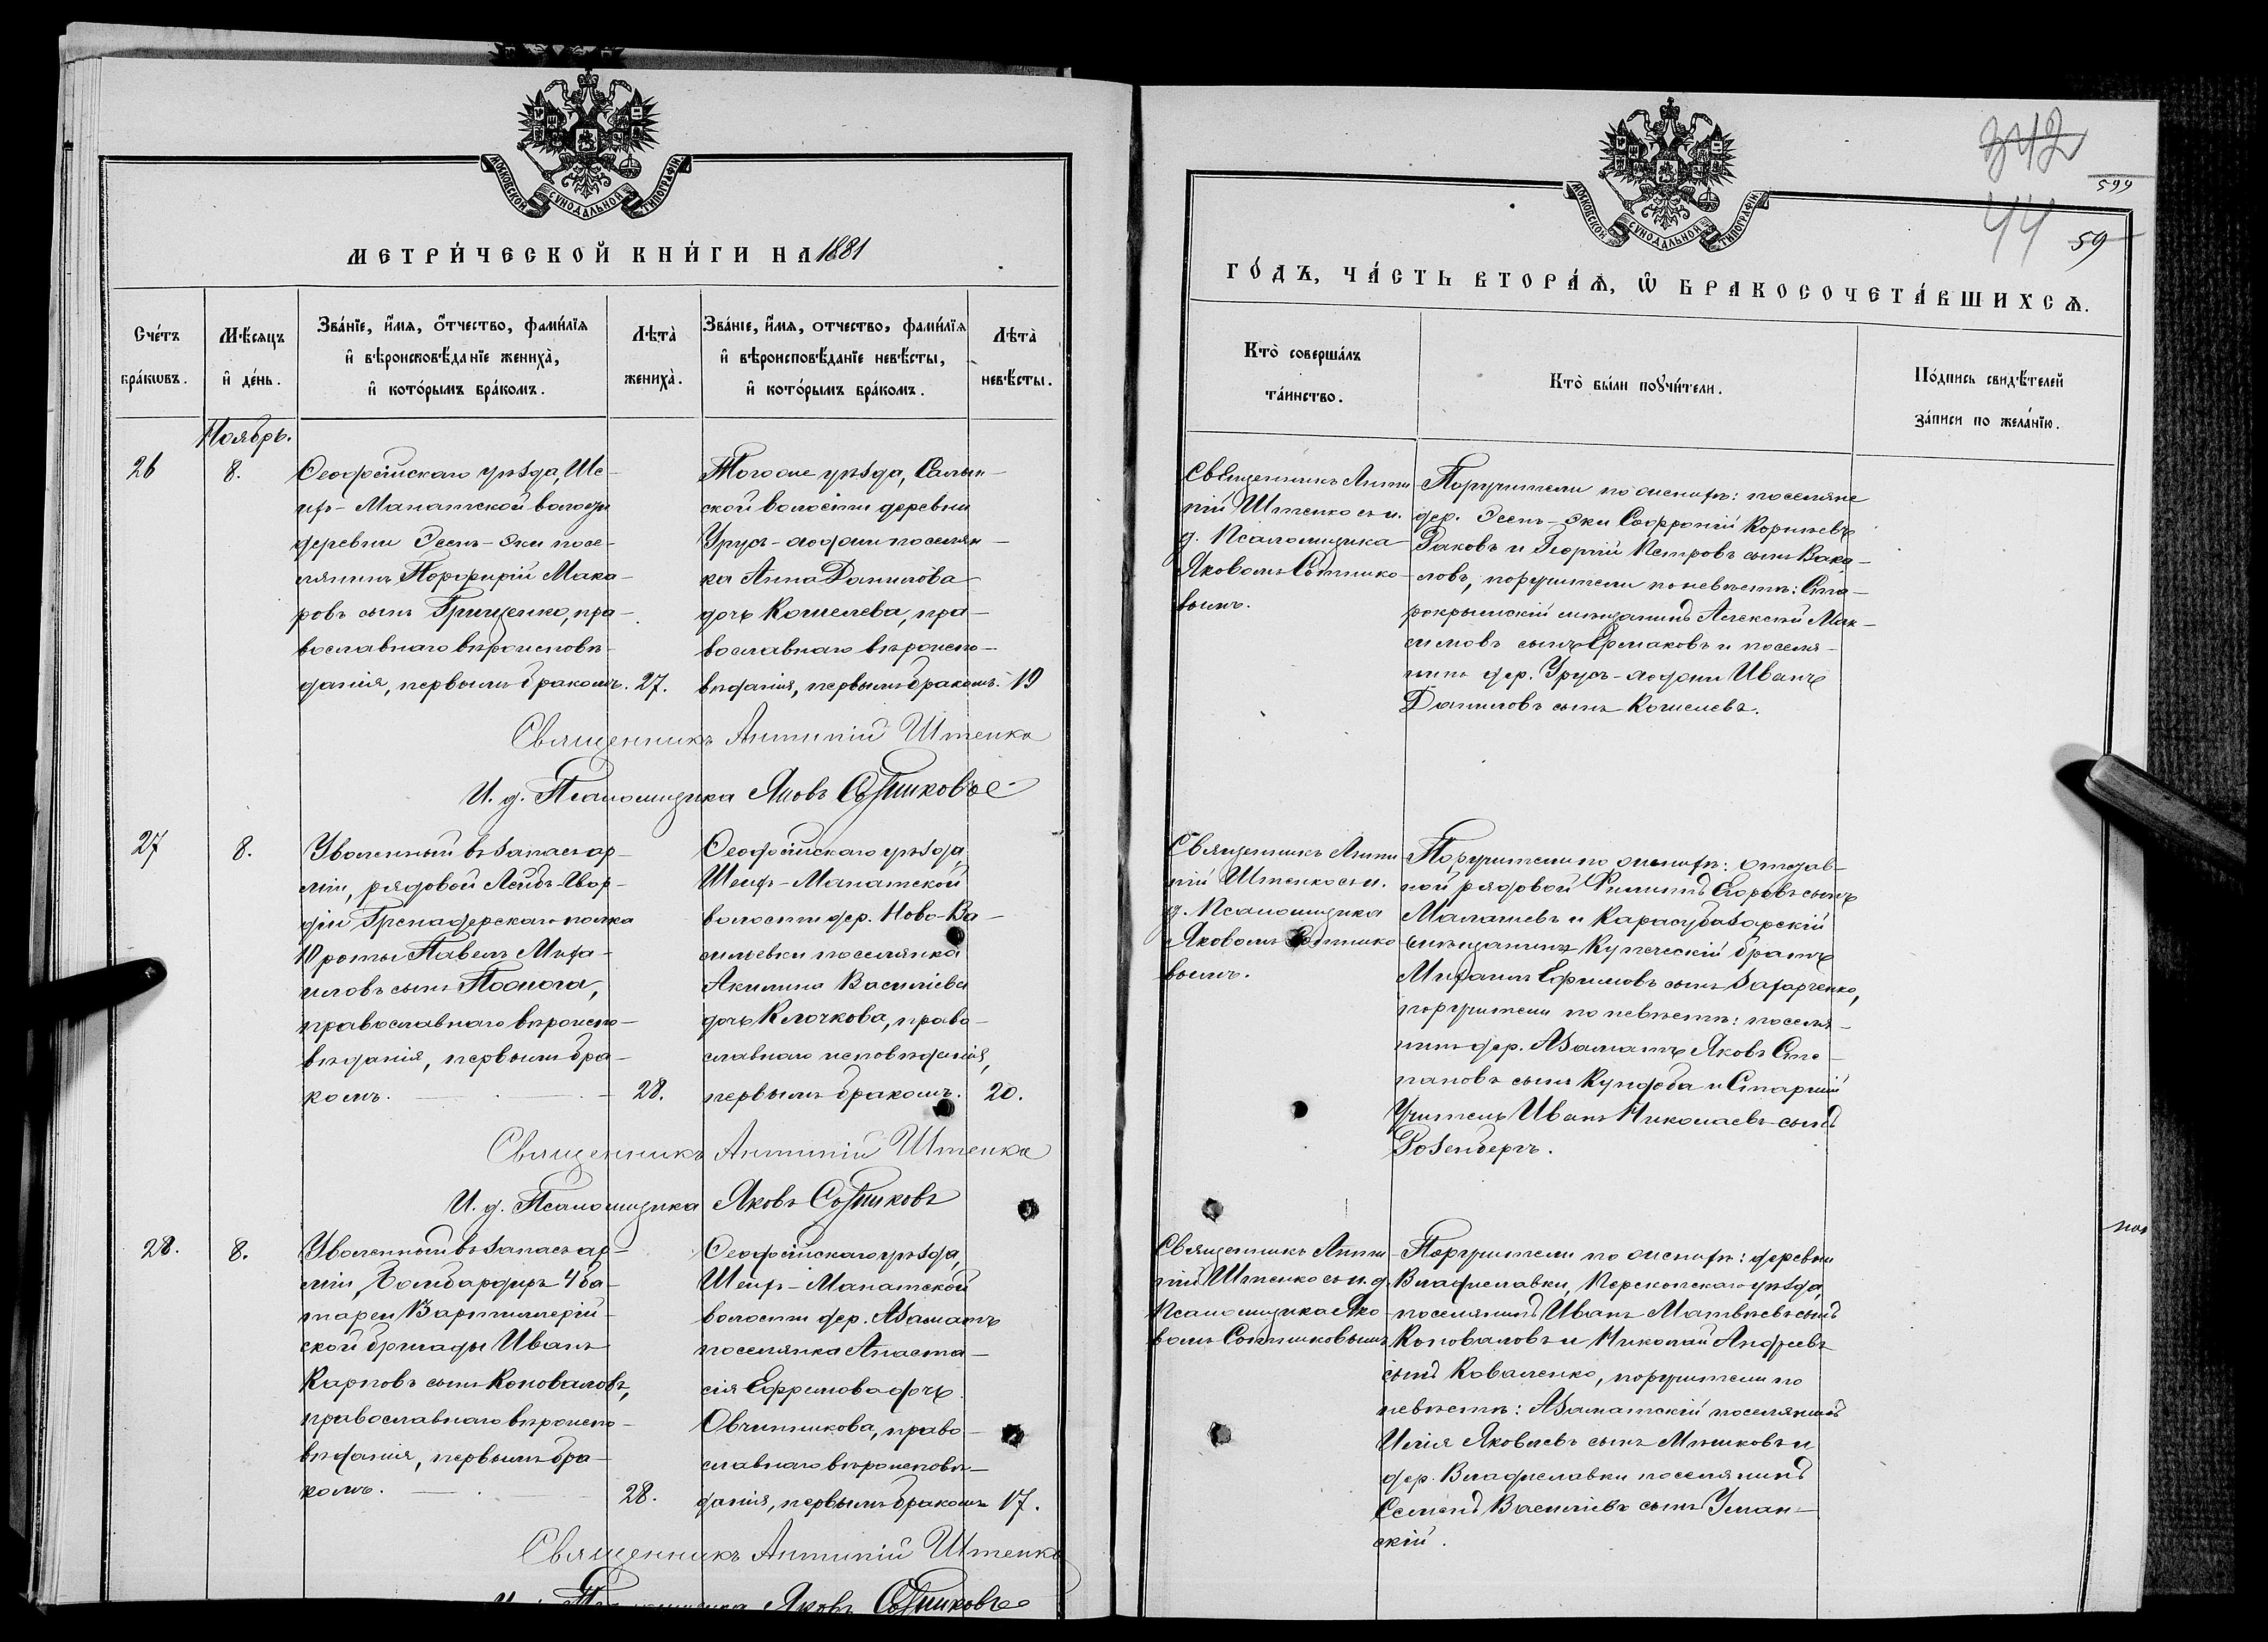 МОСКОВСКОЙ СѴНОДАЛЬНОЙ ТИПОГРАФІИ
МЕТРИ́ЧЕСКОЙ КНИ́ГИ НА 1881
Сче́тъ бра́кѡвъ.
Мѣ́сяцъ и҆ де́нь.
Зва́нїе, и҆́мя, ѻ҆́тчество, фами́лїя
и҆ вѣроисповѣ́данїе жениха̀,
и҆ кото́рымъ бра́комъ.
Лѣта̀ жениха̀.
Зва́нїе, и҆́мя, отчество, фами́лїя
и҆ вѣроисповѣ́данїе невѣ́сты,
и҆ кото́рымъ бра́комъ.
Лѣта̀ невѣ́сты.
Ноябрь.
26
8.
Ѳеодосійскаго уѣзда, Ше-
ихъ-Манатской волости
деревни Эсень-Эки посе-
лянинъ Порфирій Мака-
ровъ сынъ Грищенко, пра-
вославнаго вѣроисповѣ-
данія, первымъ бракомъ.
27.
Того же уѣзда, Салын-
ской волости деревни
Урусъ-ходжи поселян-
ка Анна Данилова
дочь Кошелева, пра-
вославнаго вѣроиспо-
вѣданія, первымъ бракомъ.
19
Священникъ Антипій Штенко
И. д. Псаломщика Яковъ Сотниковъ
27
8.
Уволенный въ запасъ ар-
міи, рядовой Лейбъ-Гвар-
діи Гренадерскаго полка
10 роты Павелъ Миха-
иловъ сынъ
православнаго вѣроиспо-
вѣданія, первымъ бра-
комъ.
28.
Ѳеодосійскаго уѣзда,
Шеихъ-Манатской
волости дер. Ново-Ва-
сильевки поселянка
Акилина Василіева
дочь Клочкова, право-
славнаго исповѣданія,
первымъ бракомъ.
20.
Священникъ Антипій Штенко
И. д. Псаломщика Яковъ Сотниковъ
28.
8.
Уволенный въ запасъ ар-
міи, Бомбардиръ 4 ба-
тареи артиллерій-
ской бригады Иванъ
Карповъ сынъ Коноваловъ,
православнаго вѣроиспо-
вѣданія, первымъ бра-
комъ.
28.
Ѳеодосійскаго уѣзда,
Шеихъ-Манатской
волости дер. Азаматъ
поселянка Анаста-
сія Ефремова дочь
Овчинникова, право-
славнаго вѣроисповѣ-
данія, первымъ бракомъ
17.
Священникъ Антипій Штенко
И. д. Псаломщика Яковъ Сотниковъ
342
599
44
59
МОСКОВСКОЙ СѴНОДАЛЬНОЙ ТИПОГРАФІИ
ГО́ДЪ, ЧА́СТЬ ВТОРА́Ѧ, Ѽ БРАКОСОЧЕТА́ВШИХСѦ.
Кто̀ соверша́лъ
та́инство.
Кто̀ бы́ли поꙋчи́тели.
По́дпись свидѣ́телей
за́писи по жела́нїю.
Священникъ Анти-
пій Штенко съ и.
д. Псаломщика
Яковомъ Сотнико-
вымъ.
Поручители по женихѣ: поселяне
дер. Эсень-Эки Софроній Корнѣевъ
Раковъ и Георгій Петровъ сынъ Вака-
ловъ, поручители по невѣстѣ: Ста-
рокрымскій мѣщанинъ Алексѣй Мак-
симовъ сынъ Ермаковъ и поселя-
нинъ дер. Урусъ-ходжи Иванъ
Даниловъ сынъ Кошелевъ.
Священникъ Анти-
пій Штенко съ и.
д. Псаломщика
Яковомъ Сотнико-
вымъ.
Поручители по женихѣ: отстав-
ной рядовой Филиппъ Егоровъ сынъ
Малашевъ и Карасубазарскій
мѣщанинъ Купеческій братъ
Михаилъ Ефимовъ сынъ Захарченко,
поручители по невѣстѣ: поселя-
нинъ дер. Азаматъ Яковъ Сте-
пановъ сынъ Кундоба и Старшій
Учитель Иванъ Николаевъ сынъ
Розенбергъ.
Священникъ Анти-
пій Штенко съ и. д.
Псаломщика Яко-
вомъ Сотниковымъ
Поручители по женихѣ: деревни
Владиславки, Перекопскаго уѣзда,
поселянинъ Иванъ Матвѣевъ сынъ
Коноваловъ и Николай Андреевъ
сынъ Коваленко, поручители по
невѣстѣ: Азаматскій поселянинъ
Илія Яковлевъ сынъ Мѣшковъ и
дер. Владиславки поселянинъ
Семенъ Василіевъ сынъ Уман-
скій.